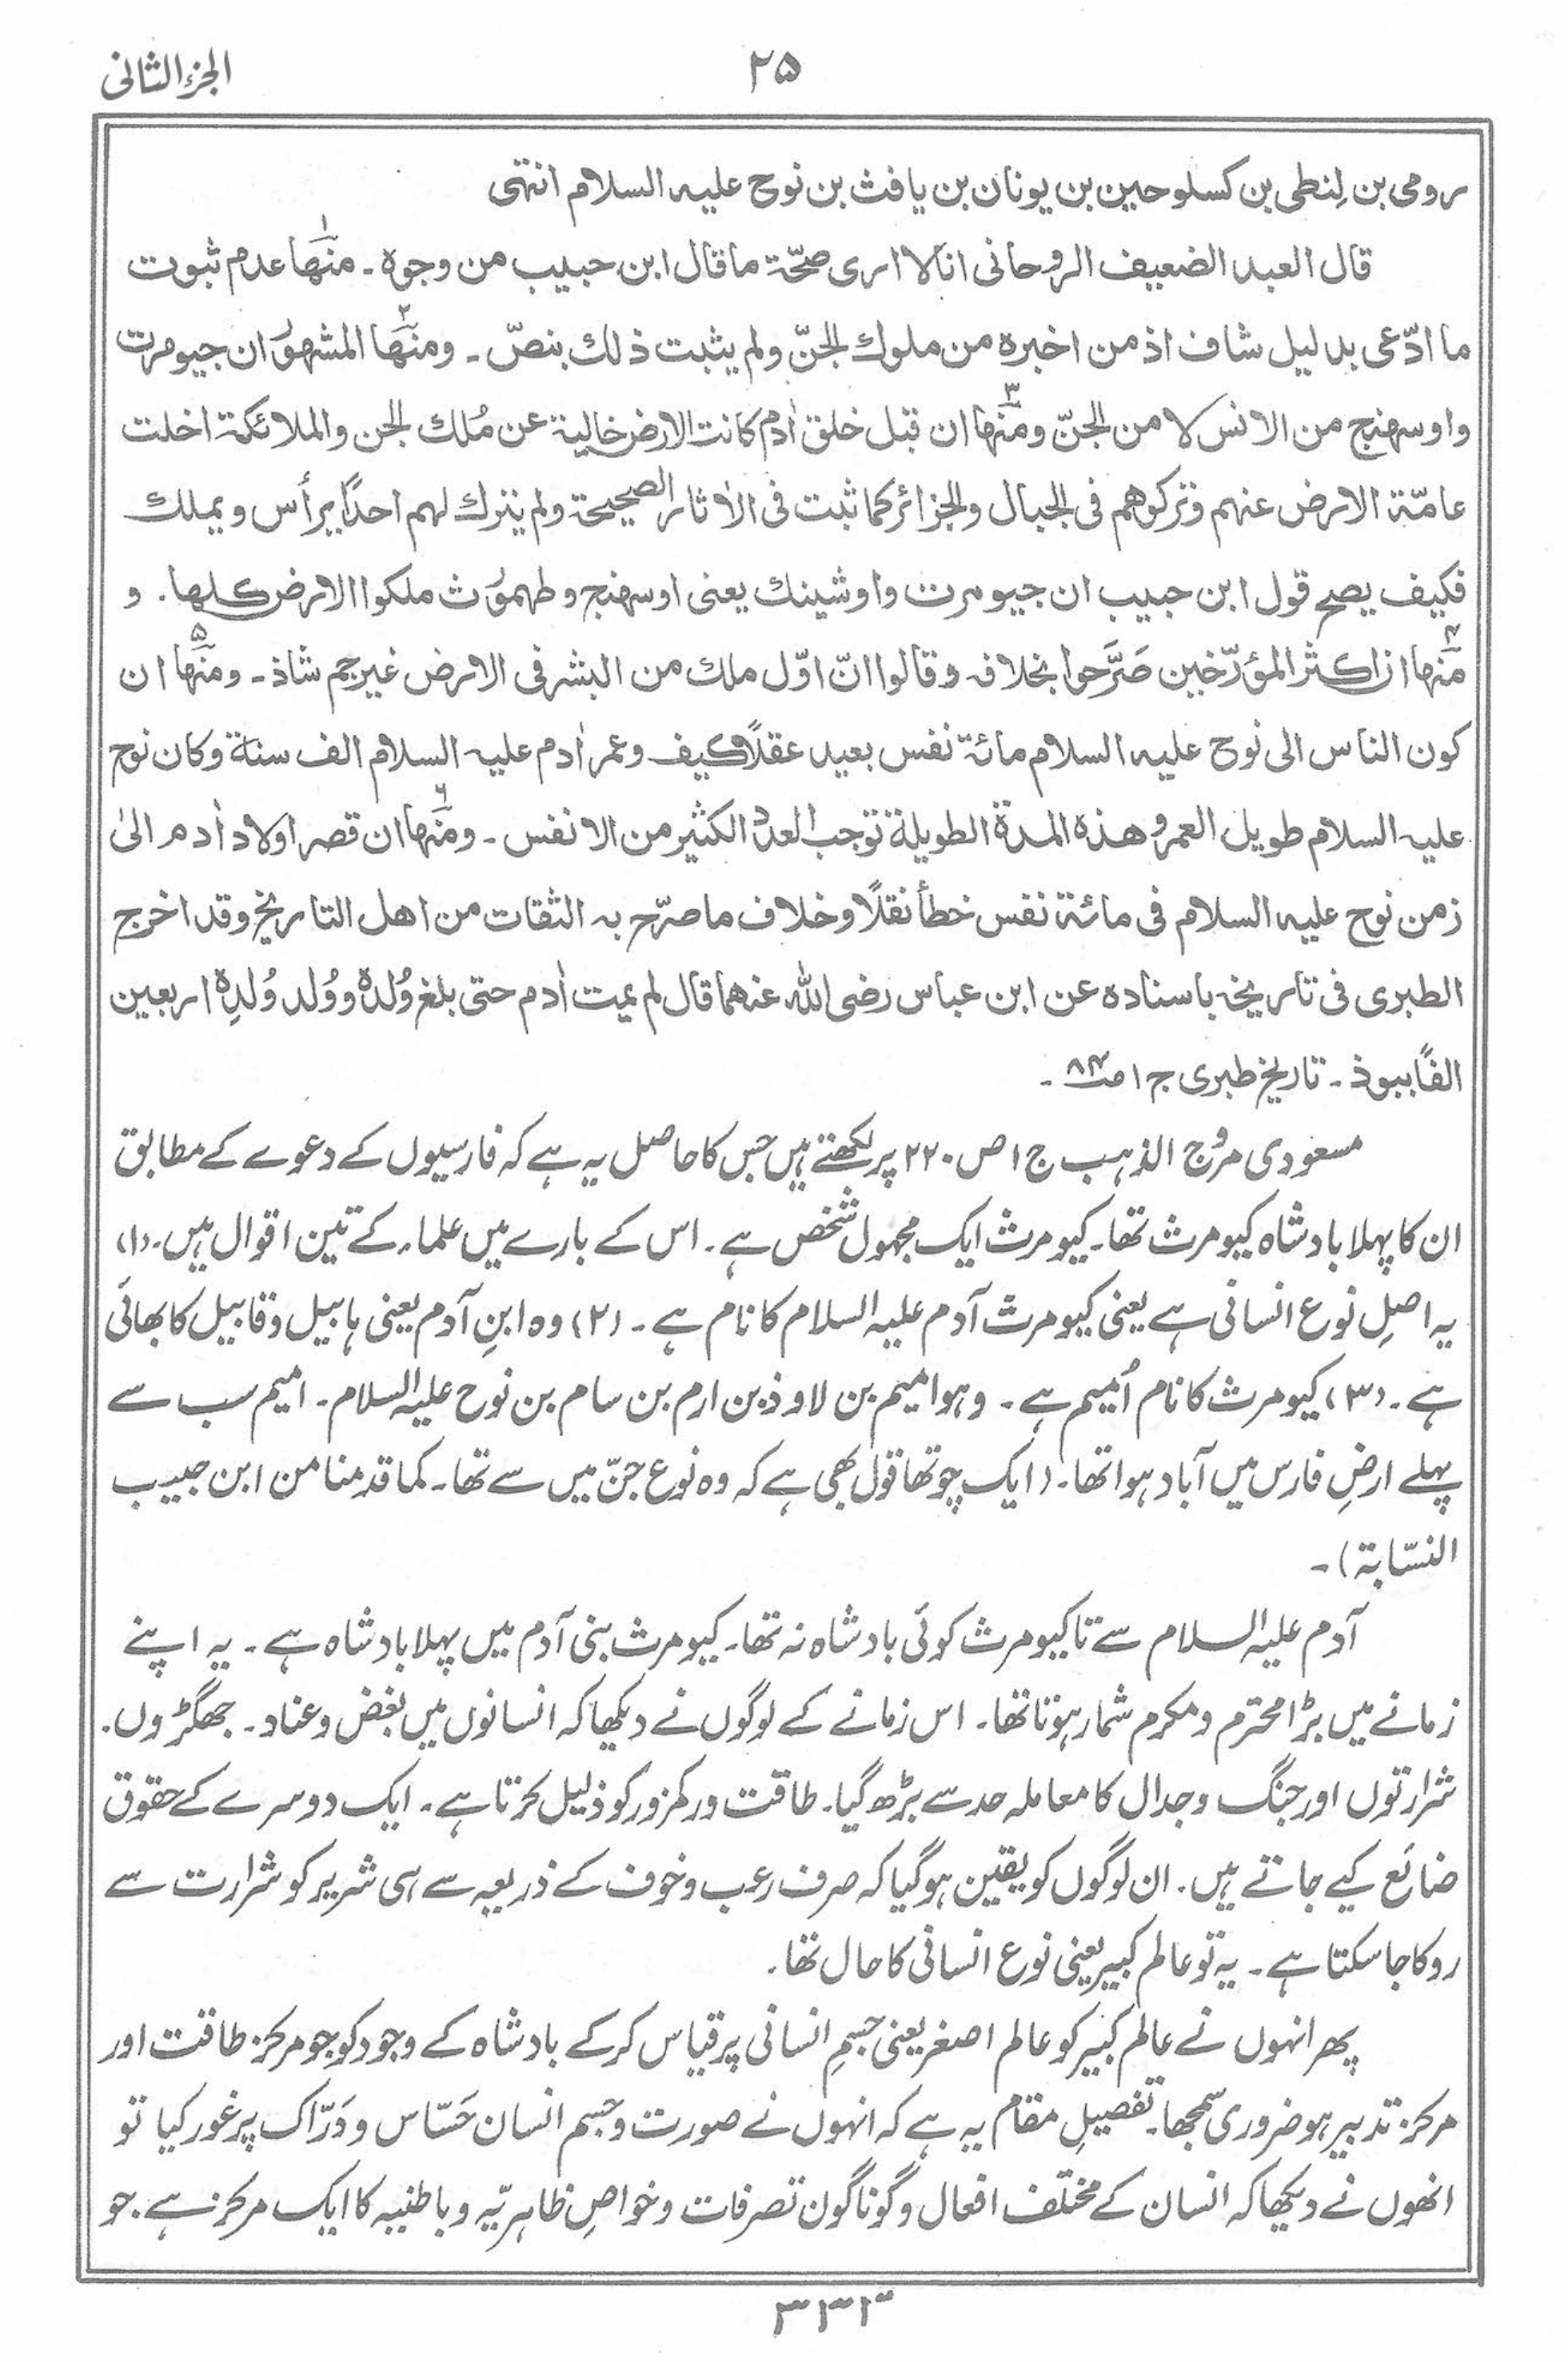 الجزء الثانی
۲۵
رومی بن لِنطی بن کسلوحین بن یونان بن یافث بن نوح علیہ السلام انتہی
قال العبد الضعیف الروحانی انا لا اری صحّۃ ما قال ابن حبیب من وجوہ ۔ منہا۱ عدم ثبوت
ما ادّعی بدلیل شاف اذ من اخبرہ من ملوك الجنّ ولم یثبت ذلك بنصّ ۔ ومنہا۲ المشہور ان جیومرت
واوسھنج من الانس لا من الجنّ ومنہا۳ ان قبل خلق اٰدم کانت الارض خالیۃ عن مُلك الجن والملائکۃ اخلت
عامّۃ الارض عنہم وترکوھم فی الجبال والجزائر کما ثبت فی الاٰثار الصحیحۃ ولم یترك لہم احدًا یرأس ویملك
فکیف یصح قول ابن حبیب ان جیومرت واوشینك یعنی اوسھنج وطہموُث ملکوا الارض کلھا ۔ و
منہا۴ ان اکثر المؤرّخین صَرَّحوا بخلافہ وقالوا انّ اوّل ملك من البشر فی الارض غیر جم شاذ ۔ ومنہا۵ ان
کون الناس الی نوح علیہ السلام مائۃ نفس بعید عقلاً کیف وعمر اٰدم علیہ السلام الف سنۃ وکان نوح
علیہ السلام طویل العمر وھذہ المدۃ الطویلۃ توجب العدد الکثیر من الانفس ۔ ومنہا۶ ان قصر اولاد اٰدم الیٰ
زمن نوح علیہ السلام فی مائۃ نفس خطأ نقلًا وخلاف ما صرّح بہ الثقات من اھل التاریخ وقد اخرج
الطبری فی تاریخہ باسنادہ عن ابن عباس رضی اللہ عنہما قال لم یمت اٰدم حتی بلغ وُلدہ ووُلد وُلدِہ اربعین
الفًا ببوذ ۔ تاریخ طبری ج ۱ ص ۸۴ ۔
مسعودی مروج الذہب ج ۱ ص ۲۲۰ پر لکھتے ہیں جس کا حاصل یہ ہے کہ فارسیوں کے دعوے کے مطابق
ان کا پہلا بادشاہ کیومرث تھا۔ کیومرث ایک مجہول شخص ہے ۔ اس کے بارے میں علماء کے تین اقوال ہیں ۔ (۱)
یہ اصلِ نوع انسانی ہے یعنی کیومرث آدم علیہ السلام کا نام ہے ۔ (۲) وہ ابنِ آدم یعنی ہابیل و قابیل کا بھائی
ہے ۔ (۳) کیومرث کا نام اُمیم ہے ۔ وہو امیم بن لاوذ بن ارم بن سام بن نوح علیہ السلام ۔ امیم سب سے
پہلے ارضِ فارس میں آباد ہوا تھا ۔ (ایک چوتھا قول بھی ہے کہ وہ نوع جنّ میں سے تھا ۔ کما قدمنا من ابن حبیب
النسّابۃ) ۔
آدم علیہ السلام سے تا کیومرث کوئی بادشاہ نہ تھا ۔ کیومرث بنی آدم میں پہلا بادشاہ ہے ۔ یہ اپنے
زمانے میں بڑا محترم و مکرم شمار ہوتا تھا ۔ اس زمانے کے لوگوں نے دیکھا کہ انسانوں میں بغض و عناد ۔ جھگڑوں ۔
شرارتوں اور جنگ و جدال کا معاملہ حد سے بڑھ گیا ۔ طاقت ور کمزور کو ذلیل کرتا ہے ۔ ایک دوسرے کے حقوق
ضائع کیے جاتے ہیں ۔ ان لوگوں کو یقین ہو گیا کہ صرف رعب و خوف کے ذریعہ سے ہی شریر کو شرارت سے
روکا جا سکتا ہے ۔ یہ تو عالم کبیر یعنی نوع انسانی کا حال تھا ۔
پھر انہوں نے عالم کبیر کو عالم اصغر یعنی جسمِ انسانی پر قیاس کر کے بادشاہ کے وجود کو جو مرکز طاقت اور
مرکز تدبیر ہو ضروری سمجھا ۔ تفصیلِ مقام یہ ہے کہ انہوں نے صورت و جسم انسان حَسّاس و دَرّاک پر غور کیا تو
انھوں نے دیکھا کہ انسان کے مختلف افعال و گوناگون تصرفات و خواصِ ظاہریّہ و باطنیہ کا ایک مرکز ہے ۔ جو